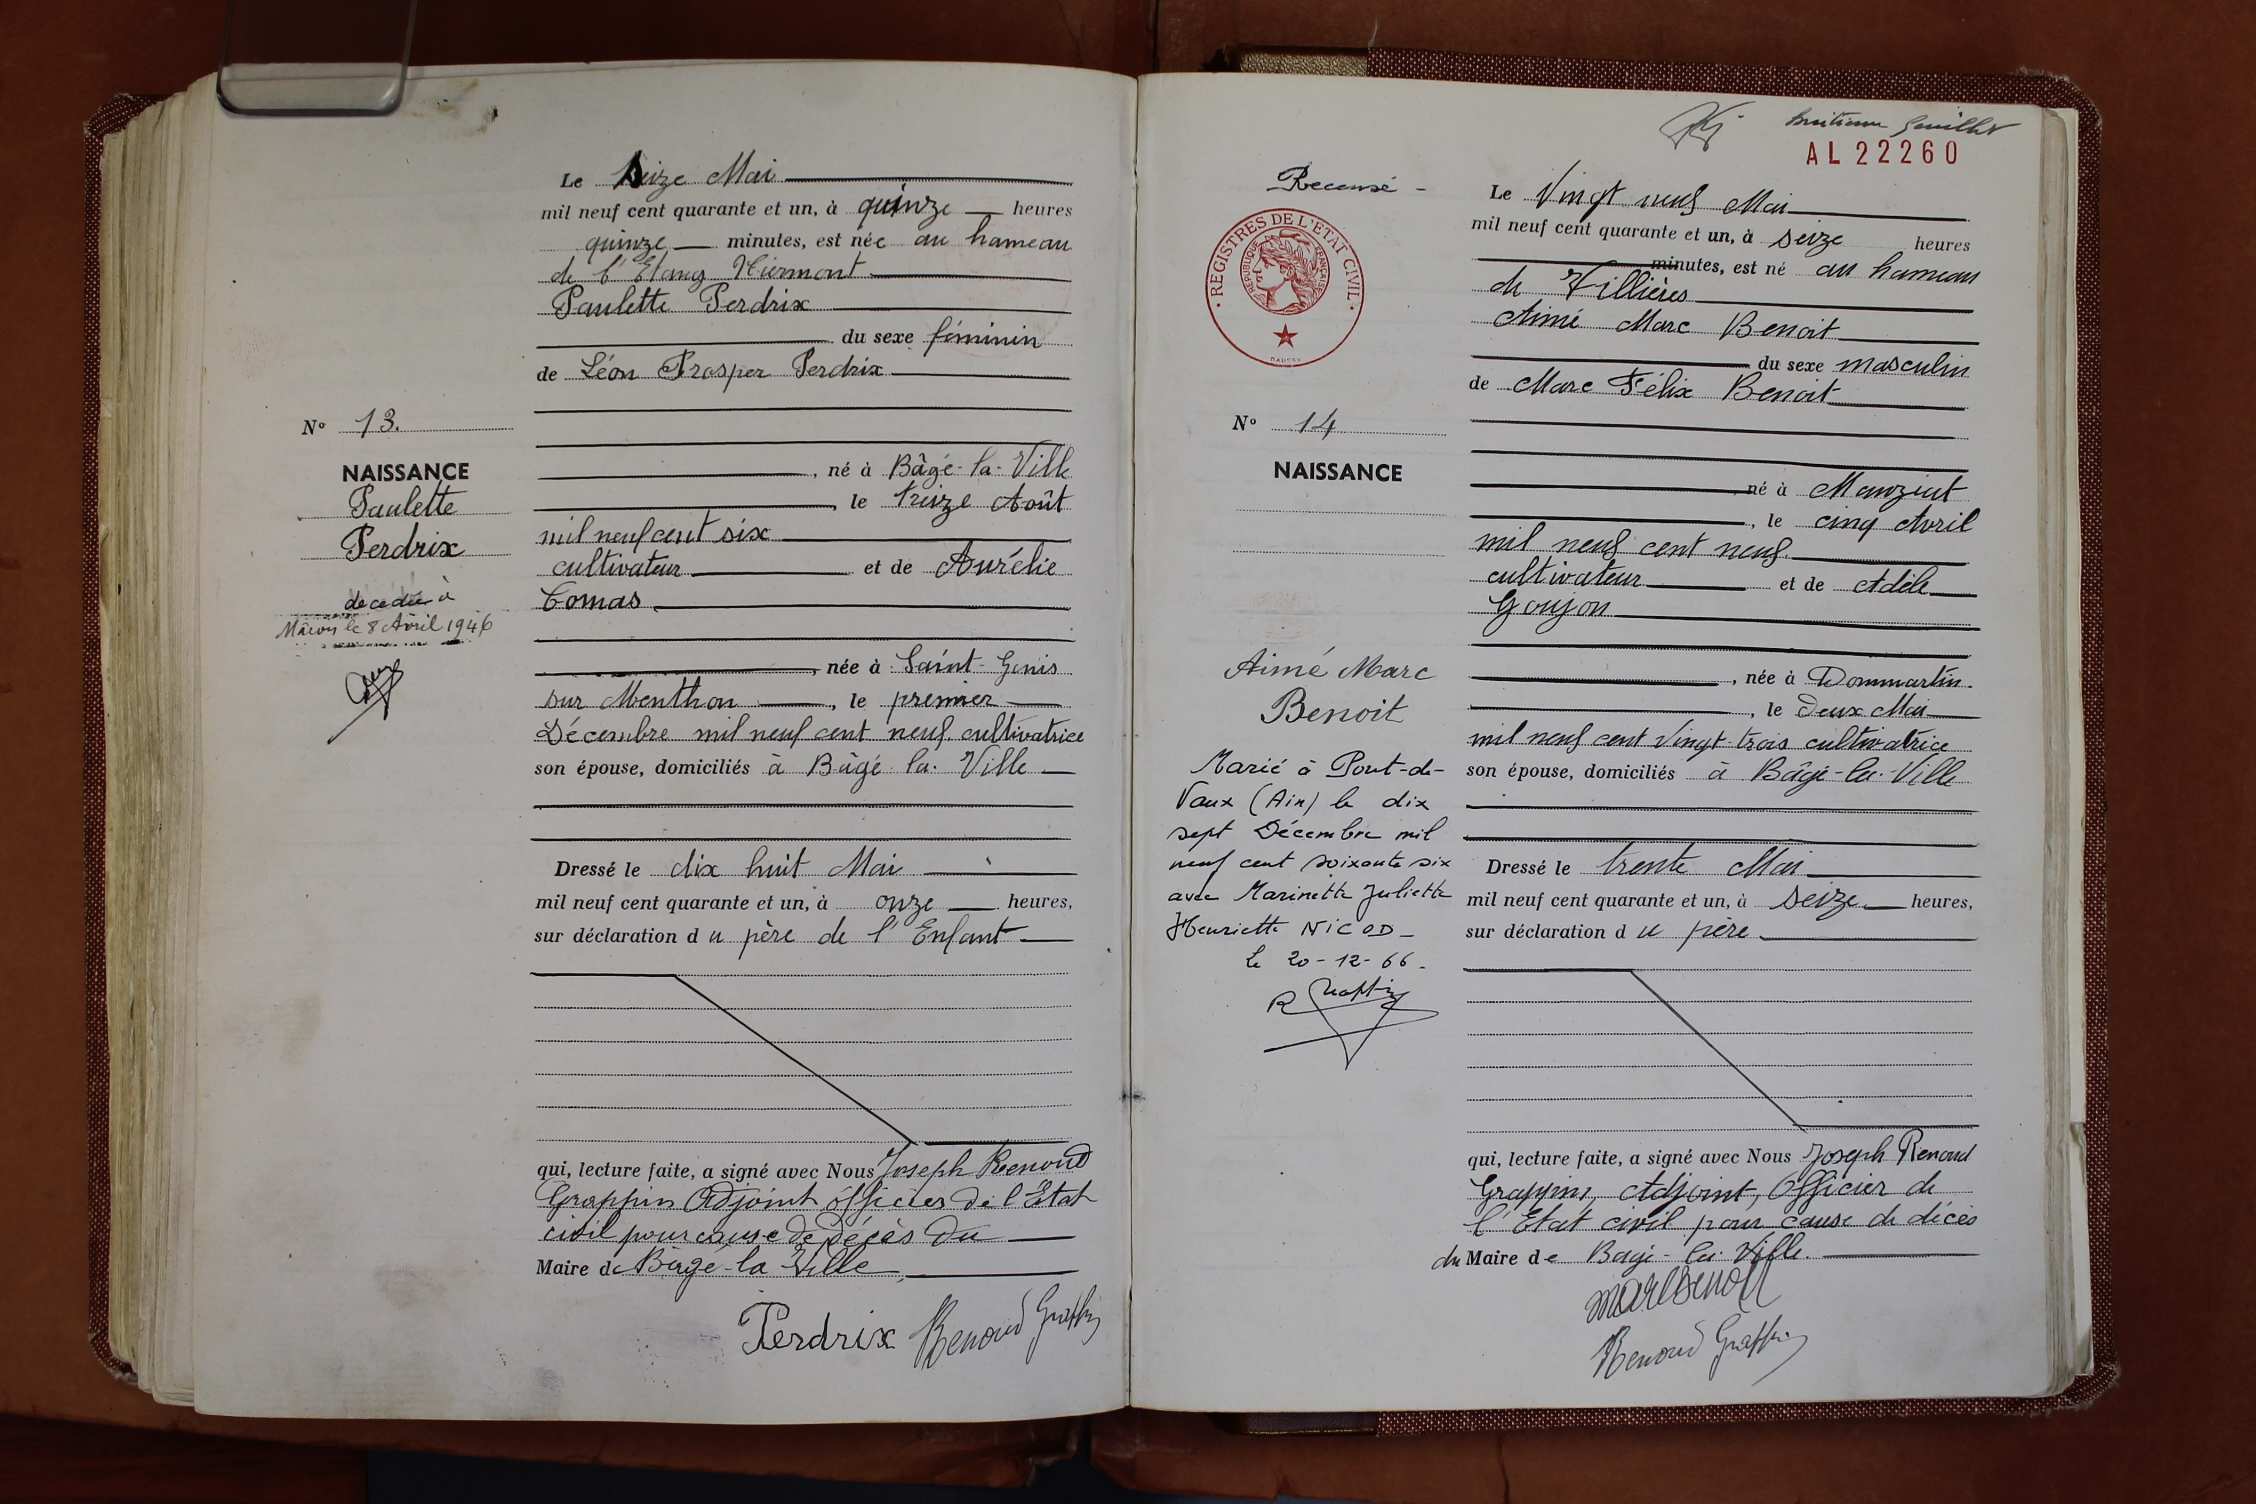 Le seize Mai
mil neuf cent quarante et un, à quinze heures
quinze minutes, est née au hameau
de l'Etang Niermont
Paulette Perdrix
du sexe féminin
de Léon Prosper Perdrix
né à Bâgé-la-Ville
, le treize Août
mil neuf cent six
cultivateur et de Aurélie
Comas
, née à Saint-Genis
sur Menthon, le premier
Décembre mil neuf cent neuf, cultivatrice
son épouse, domiciliés à Bâgé-la-Ville
Dressé le dix huit Mai
mil neuf cent quarante et un, à onze heures,
sur déclaration du père de l'Enfant
qui, lecture faite, a signé avec Nous Joseph Renoud
Grappin Adjoint officier de l'Etat
civil pour cause de Décès du
Maire de Bâgé-la Ville
Perdrix Renoud Grappin
N° 13.
NAISSANCE
Paulette
Perdrix
decedée à
Mâcon le 8 Avril 1946
AL22260
Recensé -
REGISTRES DE L'ETAT CIVIL
REPUBLIQUE FRANÇAISE
N° 14
NAISSANCE
Aimé Marc
Benoit
Marié à Pont-de-
Vaux (Ain) le dix
sept Décembre mil
neuf cent soixante six
avec Marinette Juliette
Henriette NICOD -
Le 20-12-66.
R Grappin
Le Vingt neuf Mai
mil neuf cent quarante et un, à seize heures
minutes, est né au hameau
de Fillières
Aimé Marc Benoit
du sexe masculin
de Marc Félix Benoit
né à Manziat
, le cinq Avril
mil neuf cent neuf
cultivateur et de Adèle
Goujon
, née à Dommartin
, le deux Mai
mil neuf cent vingt-trois cultivatrice
son épouse, domiciliés à Bâgé-la-Ville
Dressé le trente Mai
mil neuf cent quarante et un, à seize heures,
sur déclaration du père
qui, lecture faite, a signé avec Nous Joseph Renoud
Grappin, Adjoint, Officier de
l'Etat civil pour cause de décès
du Maire de Bagé-la-Ville.
Marc Benoit
Renoud Grappin